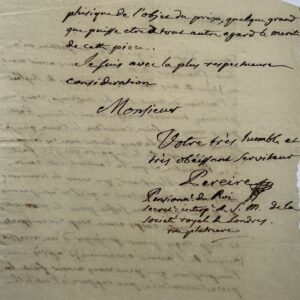 phisique de l'objet du prix, quelque grand
que puisse etre à tout autre egard le merite
de cette piece.
Je suis avec la plus respectueuse
consideration
Monsieur
Votre très humble et
très obéissant Serviteur
Pereire
Pensionn.e du Roi
secret. interp. de S. M. de la
Societé royal de Londres.
rue platriere